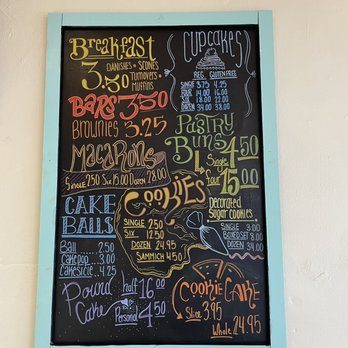 Breakfast
3.50
DANISHES • SCONES
Turnovers
Muffins
BARS 3.50
Brownies 3.25
MACARONS
SINGLE 2.50 SIX 15.00 DOZEN 28.00
CUPCAKES
REG. GLUTEN FREE
SINGLE 3.75 4.25
FOUR 14.00 16.00
SIX 18.00 22.00
DOZEN 34.00 38.00
PASTRY
BUNS 4.50
Single
Four 15.00
COOKIES
SINGLE 2.50
SIX 12.50
DOZEN 24.95
SAMMICH 4.50
Decorated
Sugar cookies
SINGLE 3.00
DOZEN 34.00
CAKE
BALLS
Ball 2.50
Cakepop 3.00
Cakesicle 4.25
Pound
Cake
half 16.00
Personal 4.50
COOKIE CAKE
Slice 3.95
Whole 24.95